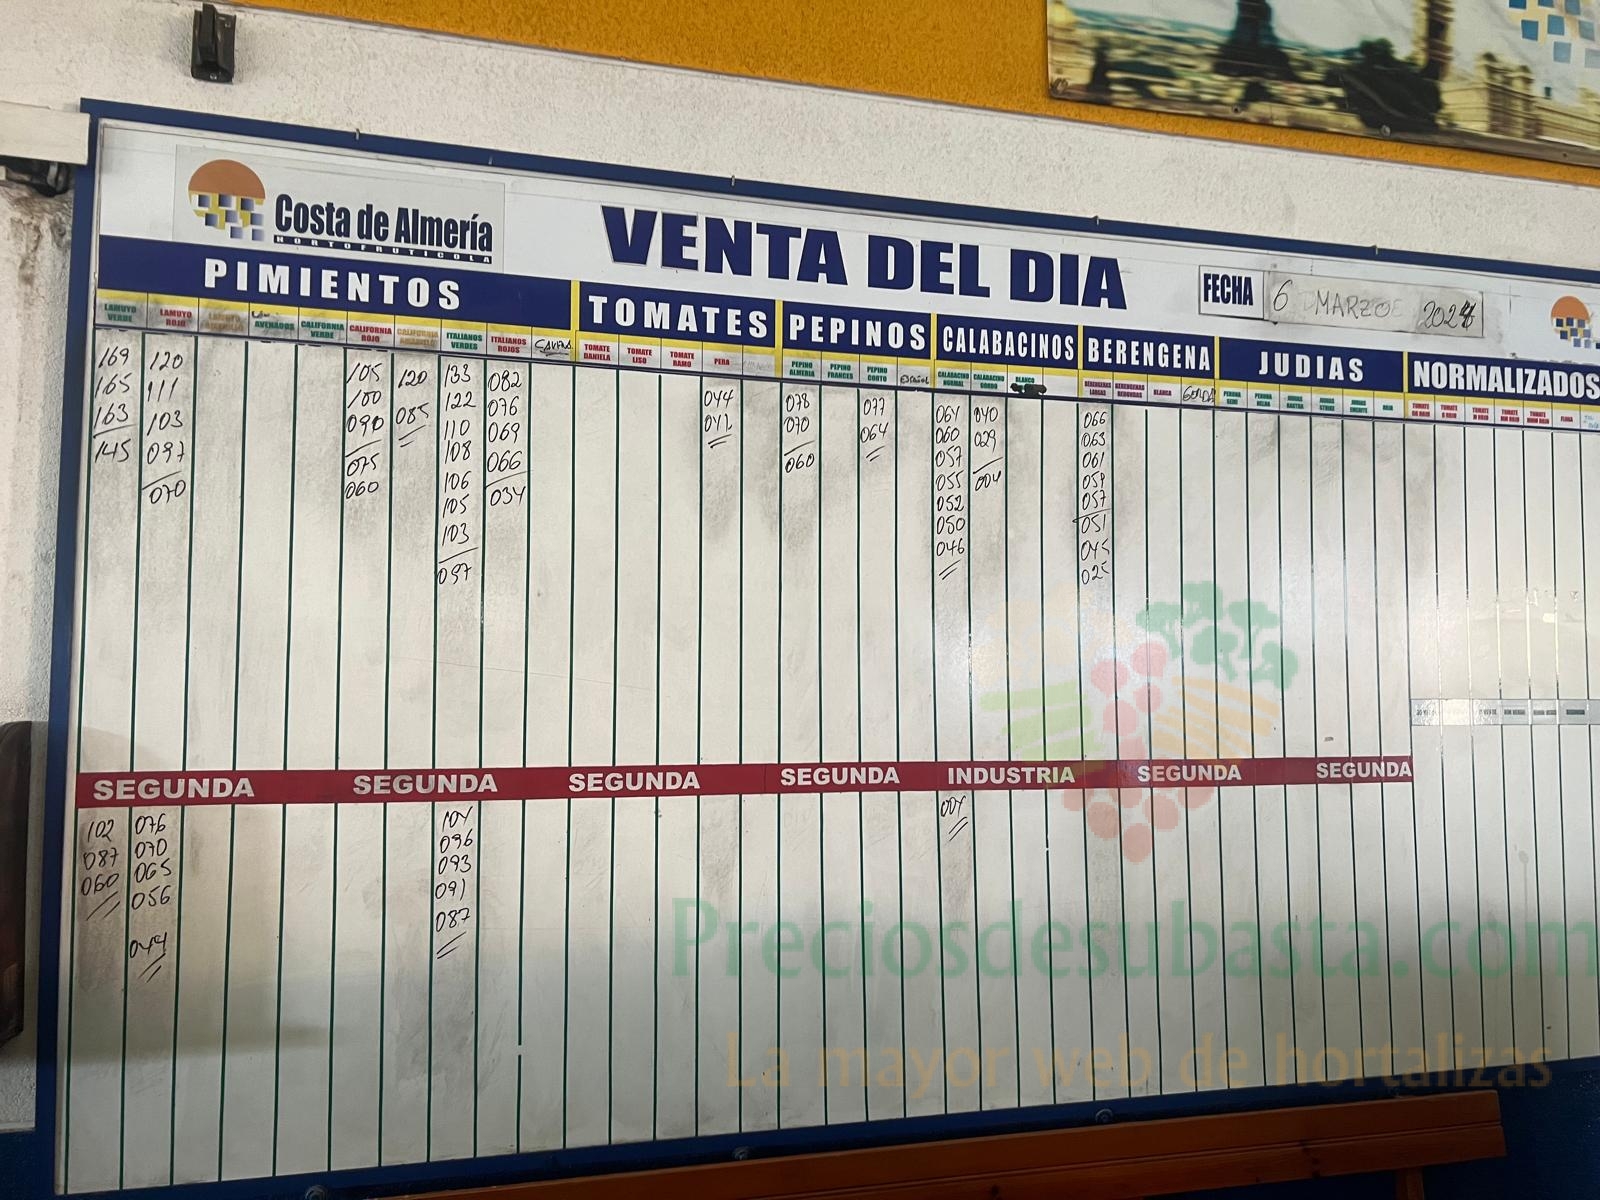 Costa de Almería
HORTOFRUTICOLA
VENTA DEL DIA
FECHA
6 MARZO 2024
PIMIENTOS
TOMATES
PEPINOS
CALABACINOS
BERENGENA
JUDIAS
NORMALIZADOS
LAMUYO VERDE
LAMUYO ROJO
ASENADOS
CALIFORNIA VERDE
CALIFORNIA ROJO
CALIFORNIA AMARILLO
ITALIANOS VERDES
ITALIANOS ROJOS
TOMATE DANIELA
TOMATE LISO
TOMATE RAMO
PERA
PEPINO ALMERIA
PEPINO FRANCES
PEPINO CORTO
ESPAÑOL
CALABACINO NORMAL
CALABACINO GORDO
BLANCO
BERENGENAS LARGAS
BERENGENAS REDONDAS
BLANCA
GORDA
169
165
163
145
120
111
103
097
070
105
100
090
075
060
120
085
133
122
110
108
106
105
103
097
082
076
069
066
034
044
041
078
070
060
077
064
064
060
057
055
052
050
046
040
029
004
066
063
061
059
057
051
045
025
SEGUNDA
SEGUNDA
SEGUNDA
SEGUNDA
INDUSTRIA
SEGUNDA
SEGUNDA
102
087
060
076
070
065
056
044
104
096
093
091
087
004
Preciosdesubasta.com
La mayor web de hortalizas